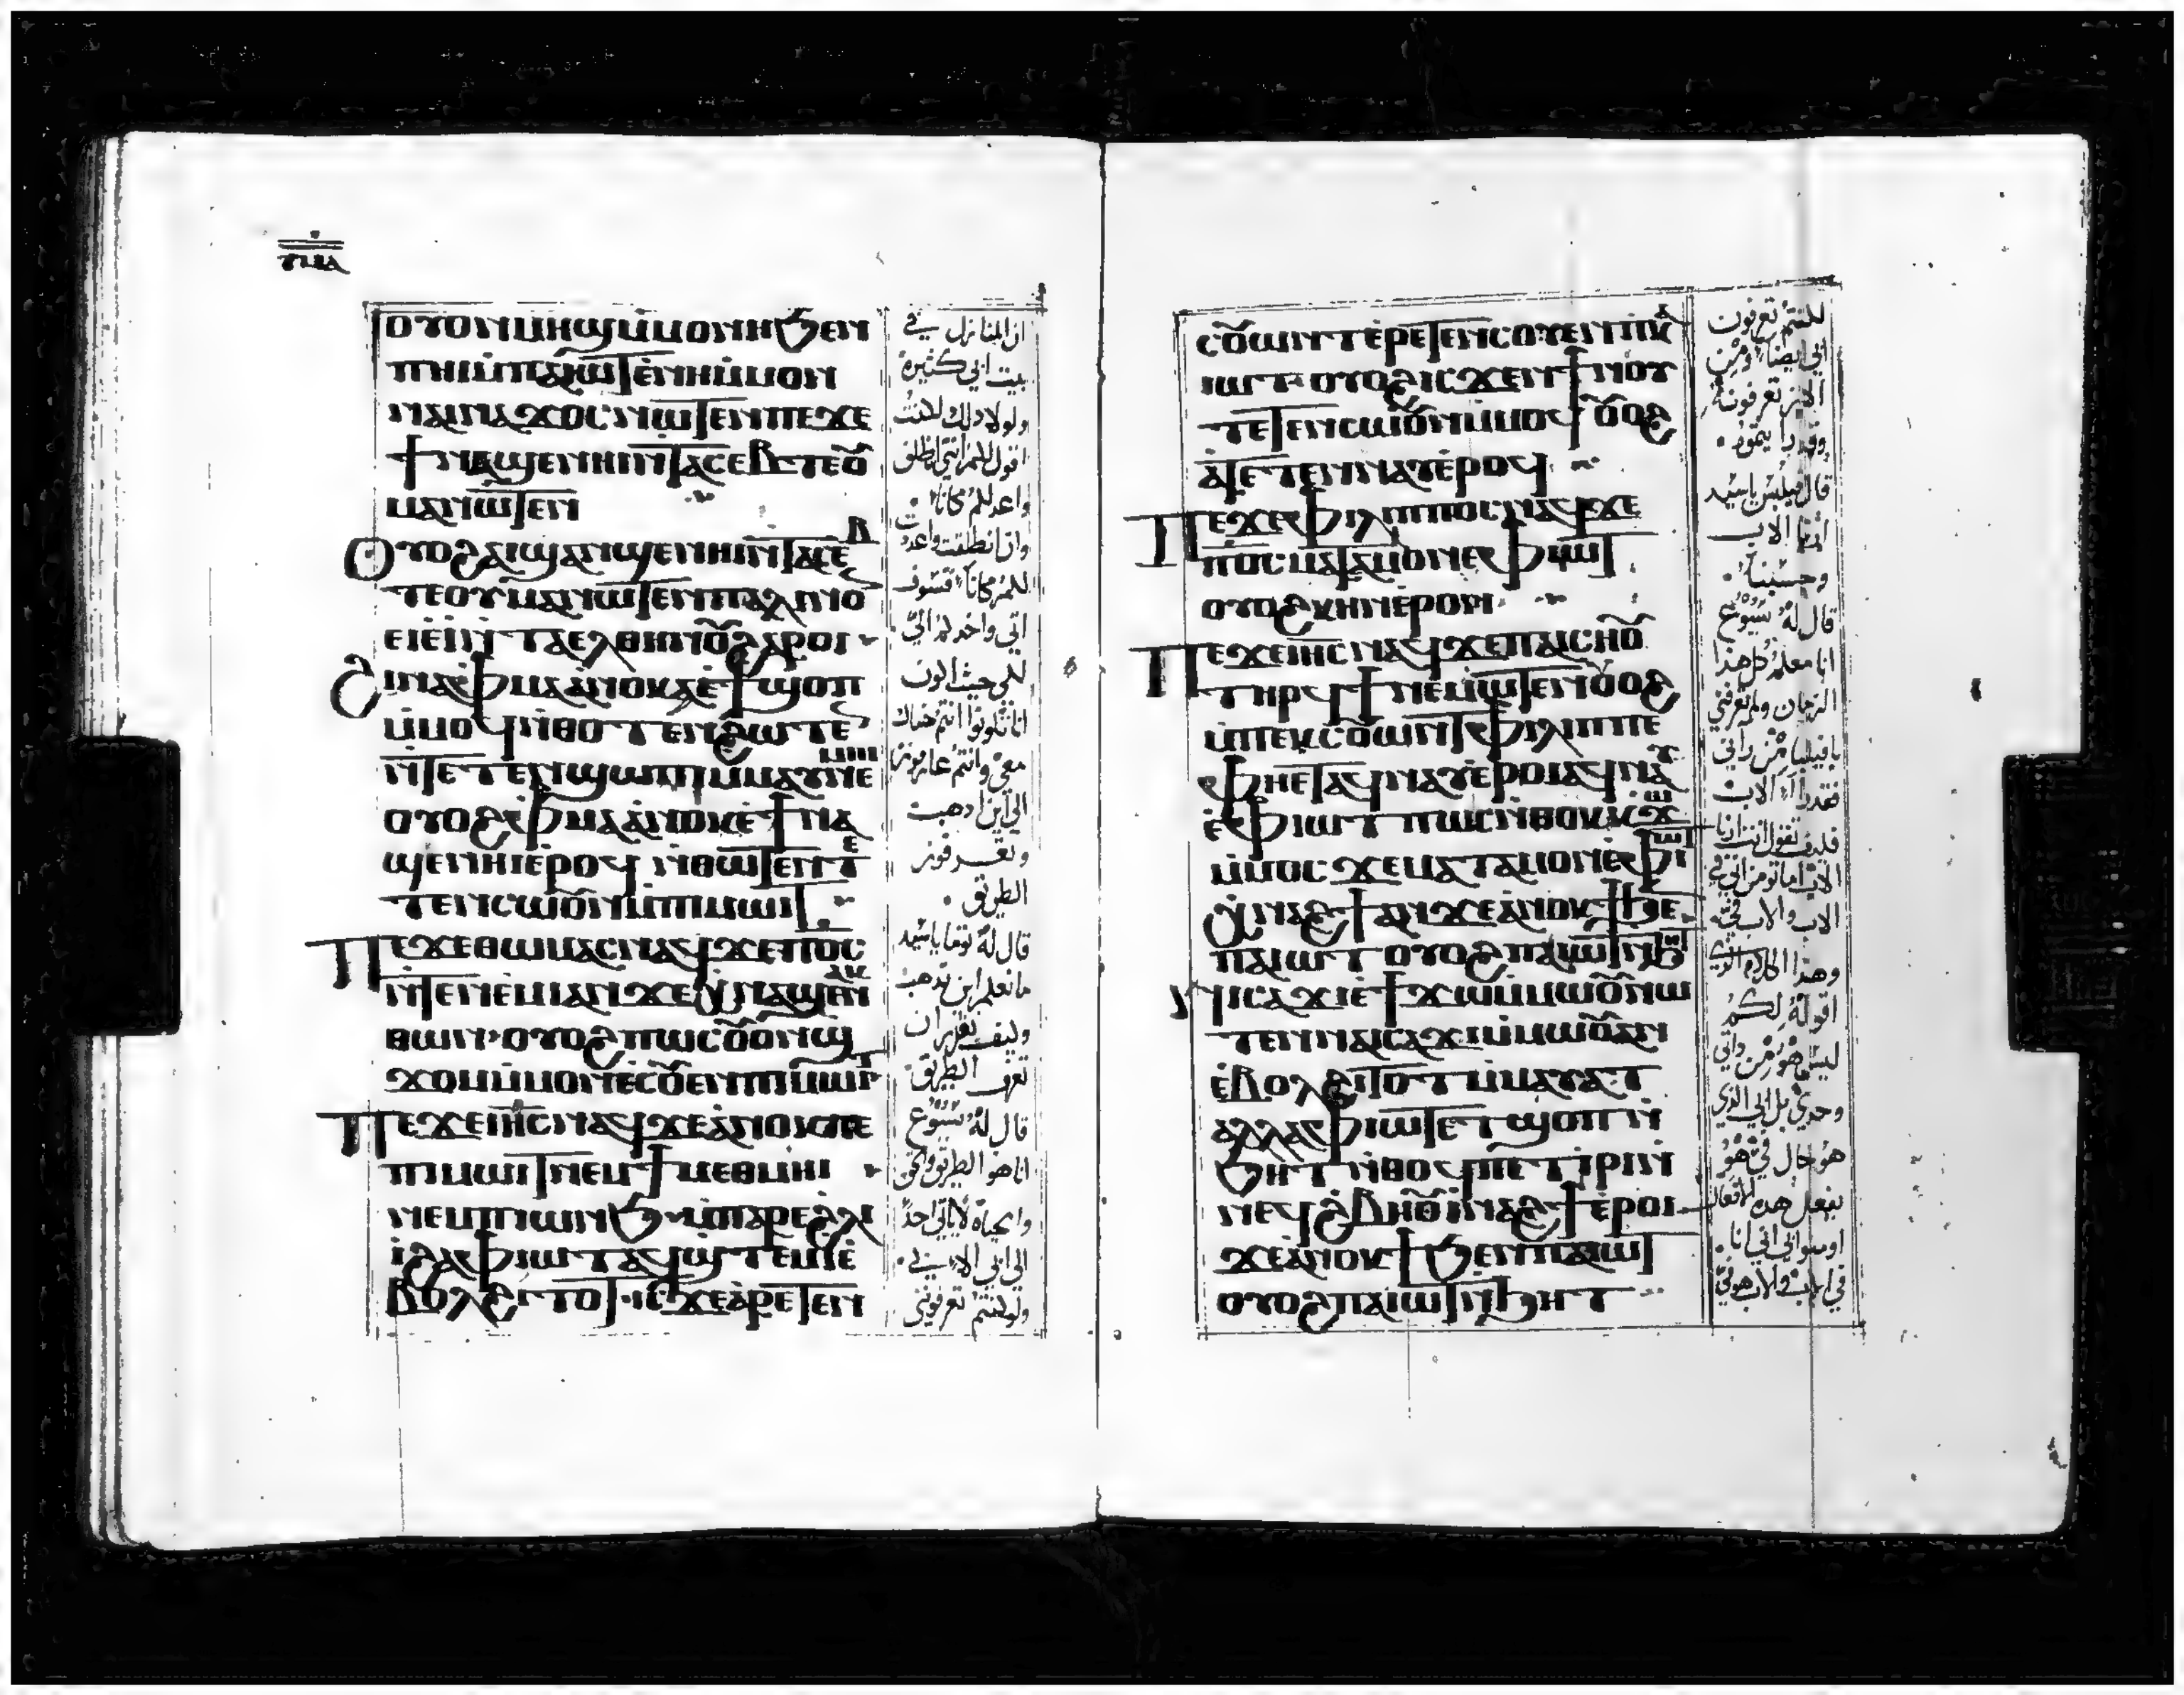 ⲩⲙⲁ
ⲟⲩⲟⲛⲙⲏϣⲙ̀ⲙⲟⲛⲏϧⲉⲛ
ⲡⲏⲓⲙ̀ⲡⲁⲓⲱⲧⲉⲛⲏⲙ̀ⲙⲟⲛ
ⲛⲁⲓⲛⲁϫⲟⲥⲛⲱⲧⲉⲛⲡⲉϫⲉ
ϯⲛⲁϣⲉⲛⲏⲓⲛ̀ⲧⲁⲥⲉⲃⲧⲉⲟ̅
ⲙⲁⲛⲱⲧⲉⲛ
ⲟⲩⲟϩⲁⲓϣⲁⲛϣⲉⲛⲏⲓⲛ̀ⲧⲁⲥⲉⲃ
ⲧⲉⲟⲩⲙⲁⲛⲱⲧⲉⲛⲡⲁⲗⲓⲛⲟ
ⲉⲓⲉ̀ⲓⲛ̀ⲧⲁⲉⲗⲑⲏⲛⲟ̅ϩⲁⲣⲟⲓ
ϩⲓⲛⲁⲫⲙⲁⲁ̀ⲛⲟⲕⲁⲉϯϣⲟⲡ
ⲙ̀ⲙⲟϥⲛ̀ⲑⲟⲧⲉⲛϩⲱⲧⲉ
ⲛ̀ⲧⲉⲧⲉⲛϣⲱⲡⲓⲙ̀ⲙⲁⲩⲛⲉⲙⲏⲓ
ⲟⲩⲟϩⲫⲙⲁⲁ̀ⲛⲟⲕⲉϯⲛⲁ
ϣⲉⲛⲏⲓⲉ̀ⲣⲟϥⲛ̀ⲑⲱⲧⲉⲛⲧⲉ
ⲧⲉⲛⲥⲱⲟ̅ⲛⲙ̀ⲡⲓⲙⲱⲓⲧ
ⲡⲉϫⲉⲑⲱⲙⲁⲥⲛⲁϥϫⲉⲡⲟ̅ⲥ̅
ⲛ̀ⲧⲉⲛⲉⲙⲓⲁⲛϫⲉⲭⲛⲁϣⲉⲛⲁⲕ
ⲑⲱⲛ·ⲟⲩⲟϩⲡⲱⲥⲟ̅ⲟⲛϣ
ϫⲟⲙⲙ̀ⲙⲟⲛⲉ̀ⲥⲟ̅ⲉⲛⲡⲓⲙⲱⲓⲧ
ⲡⲉϫⲉⲓⲏ̅ⲥ̅ⲛⲁϥϫⲉⲁ̀ⲛⲟⲕⲡⲉ
ⲡⲓⲙⲱⲓⲧⲛⲉⲙϯⲙⲉⲑⲙⲏⲓ
ⲛⲉⲙⲡⲓⲱⲛϧ·ⲙ̀ⲡⲁⲣⲉϩⲗⲓ
ⲓ̀ϩⲁⲫⲓⲱⲧⲁϥϣ̀ⲧⲉⲙⲓ̀ⲉ̀
ⲃⲟⲗϩⲓⲧⲟⲧ·ⲓⲥϫⲉⲁ̀ⲣⲉⲧⲉⲛ
ان المنازل في
بيت ابي كثيرة
ولولا ذلك لكنت
اقول لكم انني انطلق
واعد لكم مكاناً
وان انطلقت واعددت
لكم مكاناً فسوف
اتي واخدكم اليّ
لكي حيث اكون
انا تكونوا انتم هناك
معي وانتم عارفون
الي اين ادهب
وتعرفون
الطريق
قال له توما يا سيد
ما نعلم ابن تدهب
وكيف نقدر ان
نعرف الطريق
قال له يسوع
انا هو الطريق والحق
والحياة لا ياتي احداً
الي ابي الا بي
ولو كنتم تعرفوني
ⲥⲟ̅ⲱⲛⲧⲉ̀ⲣⲉⲧⲉⲛⲥⲟⲩⲉⲛⲡⲁⲕ
ⲓⲱⲧ·ⲟⲩⲟϩⲓⲥϫⲉⲛϯⲛⲟⲩ
ⲧⲉⲧⲉⲛⲥⲱⲟ̅ⲛⲙ̀ⲙⲟϥⲟ̅ⲟϩ
ⲁ̀ⲧⲉⲧⲉⲛⲛⲁⲩⲉ̀ⲣⲟϥ
ⲡⲉϫⲉⲫⲓⲗⲓⲡⲡⲟⲥⲛⲁϥϫⲉ
ⲡⲟ̅ⲥ̅ⲙⲁⲧⲁⲙⲟⲛⲉⲫⲓⲱⲧ
ⲟⲩⲟϩⲕⲏⲛⲉ̀ⲣⲟⲛ
ⲡⲉϫⲉⲓⲏ̅ⲥ̅ⲛⲁϥϫⲉⲡⲁⲓⲥⲏⲟ̅
ⲧⲏⲣϥϯⲛⲉⲙⲱⲧⲉⲛⲟ̅ⲟϩ
ⲙ̀ⲡⲉⲕⲥⲟ̅ⲱⲛⲧⲫⲓⲗⲓⲡⲡⲉ
ⲫⲏⲉⲧⲁϥⲛⲁⲩⲉ̀ⲣⲟⲓⲁϥⲛⲁⲩ
ⲉ̀ⲫⲓⲱⲧⲡⲱⲥⲛ̀ⲑⲟⲕⲕϫⲱ
ⲙ̀ⲙⲟⲥϫⲉⲙⲁⲧⲁⲙⲟⲛⲉⲫⲓⲱⲧ
ⲭⲛⲁϩϯⲁⲛϫⲉⲁ̀ⲛⲟⲕϯϧⲉ
ⲡⲁⲓⲱⲧⲟⲩⲟϩⲡⲁⲓⲱⲧⲛ̀ϧⲏⲧ
ⲛⲓⲥⲁϫⲓⲉ̀ϯϫⲱⲙ̀ⲙⲱⲟ̅ⲛⲱ
ⲧⲉⲛⲛⲁⲓⲥⲁϫⲓⲙ̀ⲙⲱⲟ̅ⲁⲛ
ⲉ̀ⲃⲟⲗϩⲓⲧⲟⲧⲙ̀ⲙⲁⲩⲁⲧ
ⲁⲗⲗⲁⲫⲓⲱⲧⲉⲧϣⲟⲡⲛ̀
ϧⲏⲧⲛ̀ⲑⲟϥⲡⲉⲧⲓ̀ⲣⲓⲛ
ⲛⲉϥϩⲃⲏⲟ̅ⲓⲛⲁϩϯⲉ̀ⲣⲟⲓ
ϫⲉⲁ̀ⲛⲟⲕϯϧⲉⲛⲡⲁⲓⲱⲧ
ⲟⲩⲟϩⲡⲁⲓⲱⲧⲛ̀ϧⲏⲧ
لكنتم تعرفون
ابي ايضاً ومن
الان تعرفونه
وقد رايتموه
قال فيلبس يا سيد
ارنا الاب
وحسبنا
قال له يسوع
انا معكم كل هذا
الزمان ولم تعرفني
يا فيلبا من راني
فقد راا الاب
فكيف تقول انت ارنا
الاب اما تومن اني في
الاب والاب فيّ
وهذا الكلام الذي
اقوله لكم
ليس هو من داتي
وحدي بل ابي الذي
هو حال فيّ هو
يفعل هده الافعال
اومنوا بي اني انا
في الاب والاب هو فيّ